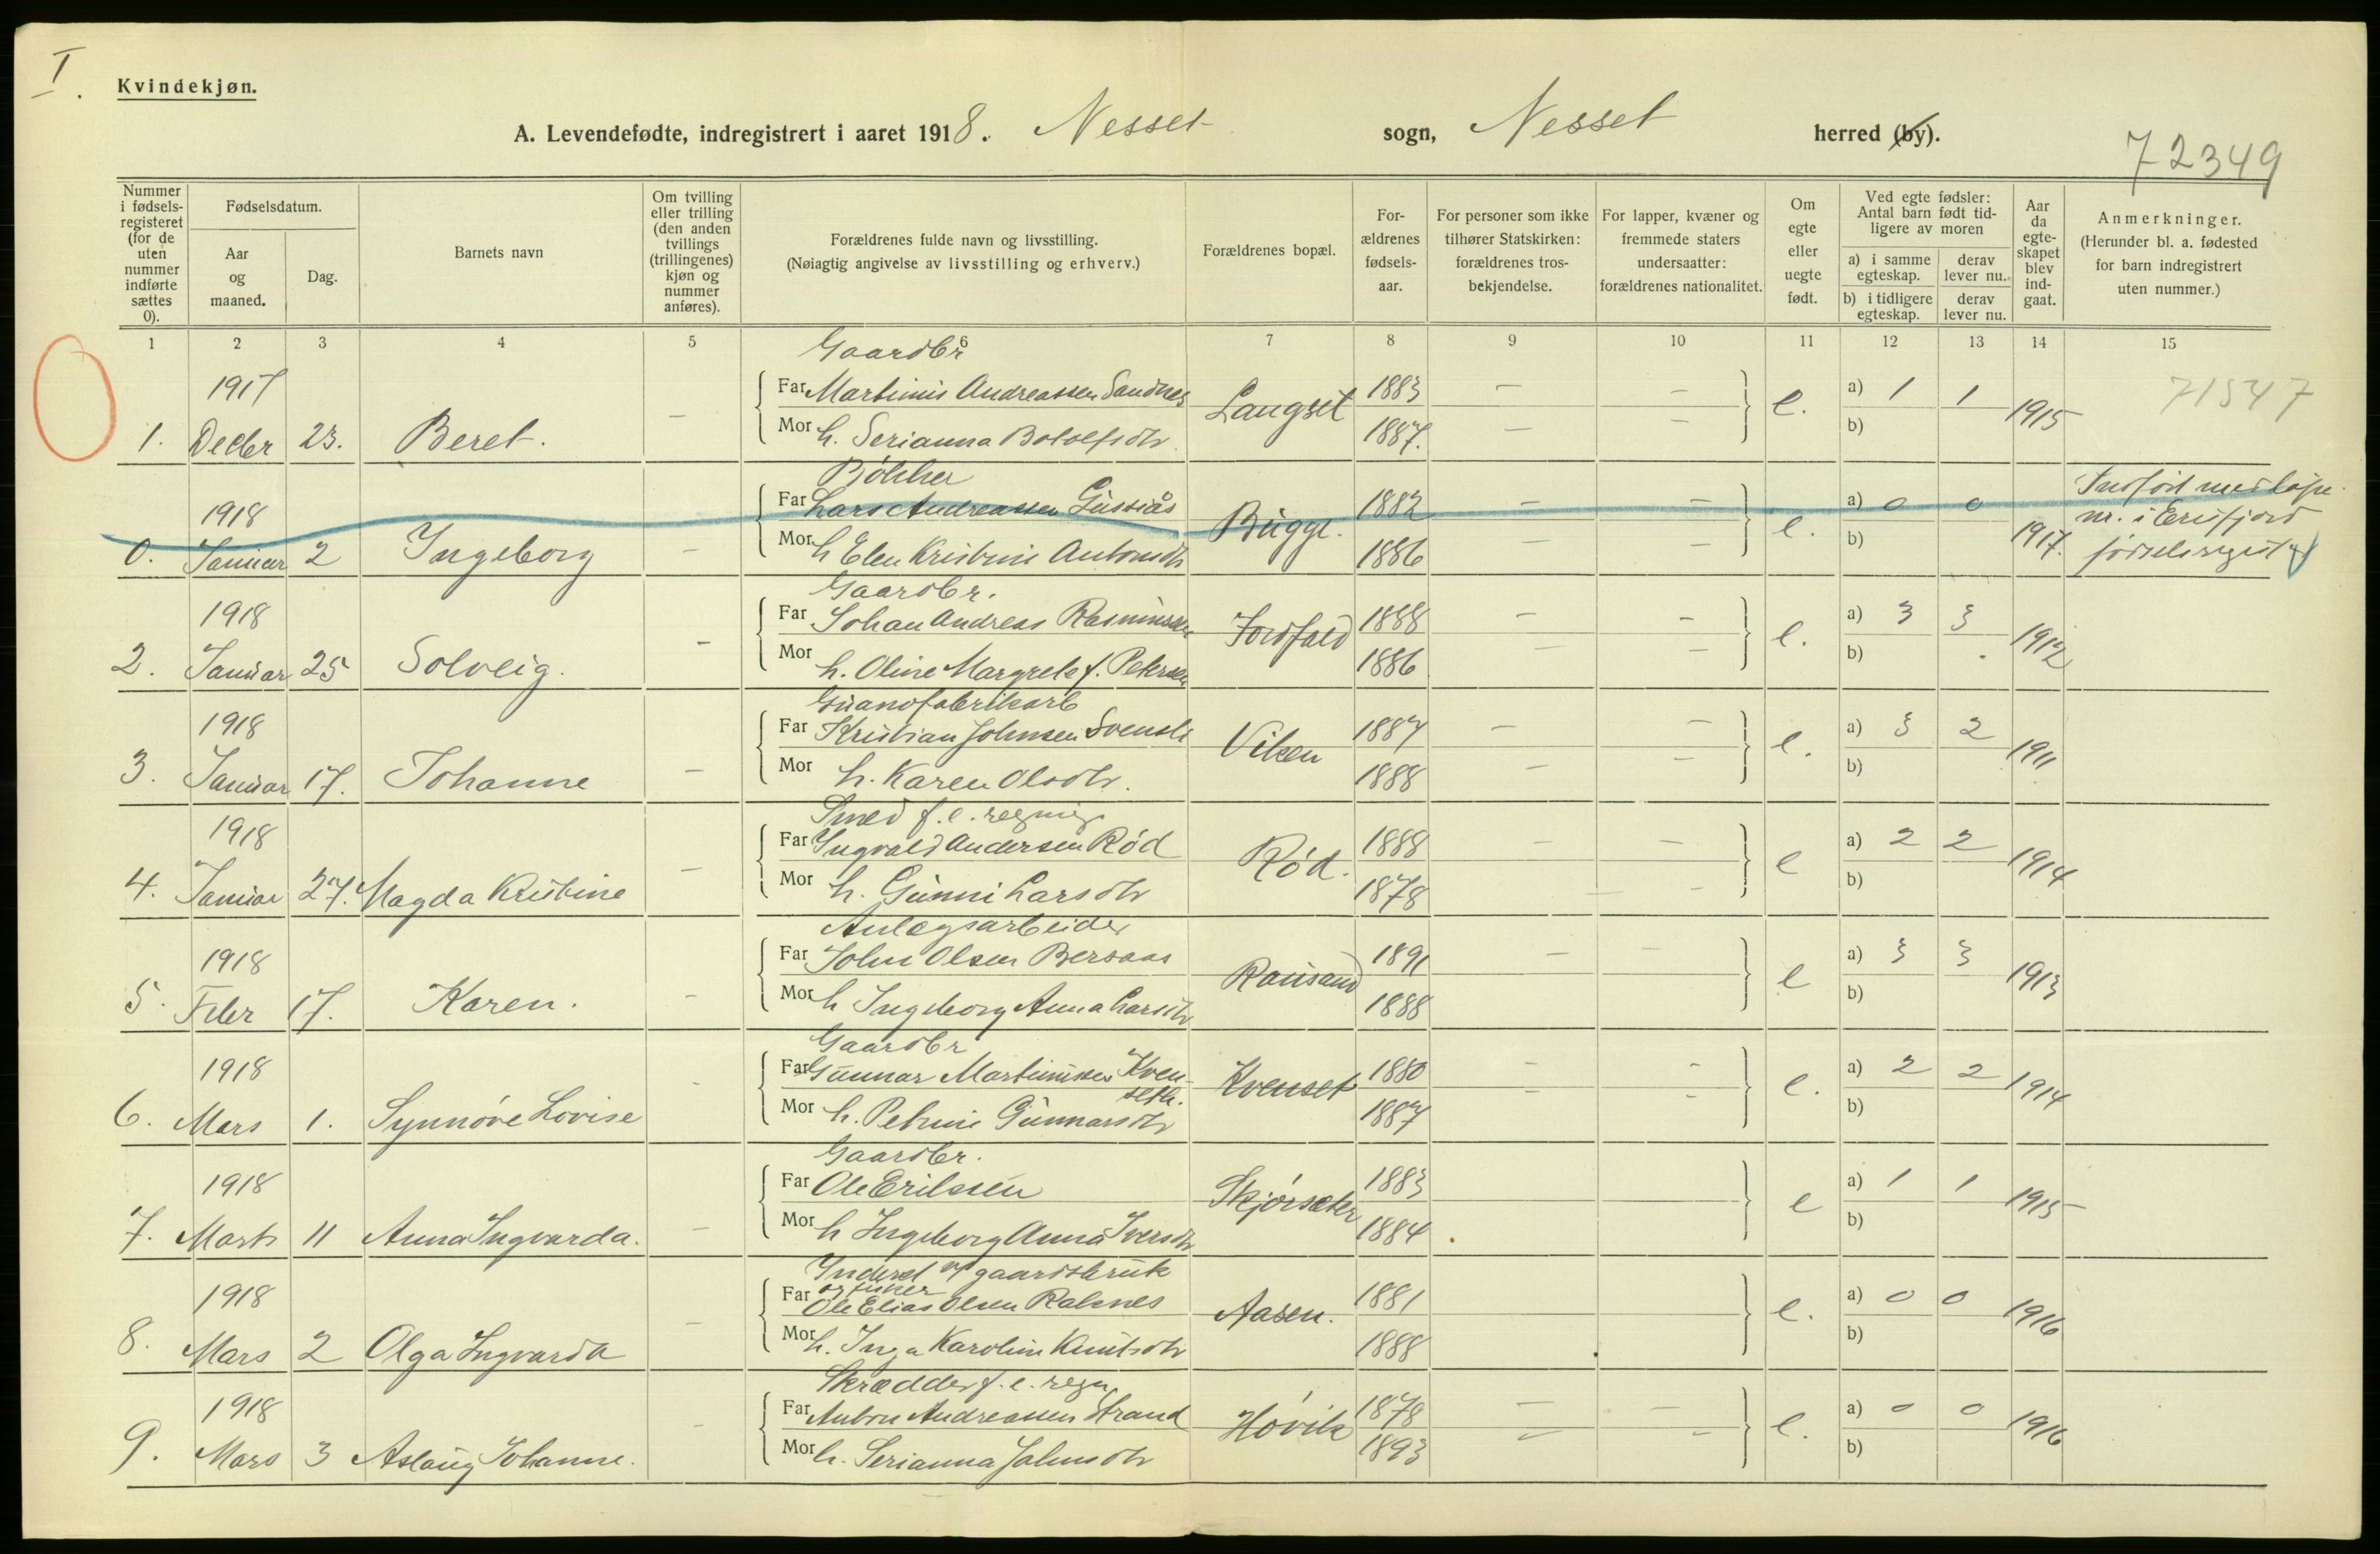 I.
Kvindekjøn.
A. Levendefødte, indregistrert i aaret 1918. Nesset sogn, Nesset herred (by).
72349
Nummer i fødsels-registeret (for de uten nummer indførte sættes 0).
Fødselsdatum.
Aar og maaned.
Dag.
Barnets navn
Om tvilling eller trilling (den anden tvillings (trillingenes) kjøn og nummer anføres).
Forældrenes fulde navn og livsstilling.
(Nøiagtig angivelse av livsstilling og erhverv.)
Forældrenes bopæl.
For-ældrenes fødsels-aar.
For personer som ikke tilhører Statskirken: forældrenes tros-bekjendelse.
For lapper, kvæner og fremmede staters undersaatter: forældrenes nationalitet.
Om egte eller uegte født.
Ved egte fødsler: Antal barn født tid-ligere av moren
a) i samme egteskap.
derav lever nu.
b) i tidligere egteskap.
derav lever nu.
Aar da egte-skapet blev ind-gaat.
Anmerkninger.
(Herunder bl. a. fødested for barn indregistrert uten nummer.)
1 2 3 4 5 6 7 8 9 10 11 12 13 14 15
Gaardbr
1917 Far Martinus Andreassen Sandnes 1883 — — a) 1 1 71547
1. Decbr 23. Beret. — Mor h. Serianna Botolfsdtr Langset 1887. — — e. b) 1915
Bøkker
1918 Far Lars Andreassen Gussiås 1882 — — a) 0 0 Indført med løpe
nr. i Eresfjord
0. Januar 2 Ingeborg — Mor h Elen Kristine Antonsdtr Bugge. 1886 — — e. b) 1917. fødselsregister
Gaardbr.
1918 Far Johan Andreas Rasmussen 1888 — — a) 3 3
2. Januar 25 Solveig. — Mor h. Oline Margrete f. Petersen Jordfald 1886 — — e. b) 1912
Guanofabrikarb
1918 Far Kristian Johnsen Svensli 1887 — — a) 3 2
3. Januar 17. Johanne — Mor h. Karen Olsdtr. Viken 1888 — — e. b) 1911
Smed f. e. regning
1918 Far Ingvald Andersen Rød 1888 — — a) 2 2
4. Januar 27. Magda Kristine — Mor h. Gunni Larsdtr Rød. 1878 — — e b) 1914
Anlægsarbeider
1918 Far John Olsen Bersaas 1891 — — a) 3 3
5. Febr 17. Karen. — Mor h Ingeborg Anna Larsdtr Rausand 1888 e b) 1913
Gaardbr
1918 Far Gunnar Martinussen Kven- 1880 — — a) 2 2
seth.
6. Mars 1. Synnøve Lovise - Mor h. Petrine Gunnarsdtr Kvenset 1887 — — e. b) 1914
Gaardbr.
1918 Far Ole Eriksen 1883 a) 1 1
7. Marts 11 Anna Ingvarda. — Mor h Ingeborg Anna Iversdtr Skjørsæter 1884 e b) 1915
Inderst gaardsbruk
og fisker
1918 Far Ole Elias Olsen Raknes 1881 a) 0 0
8. Mars 2 Olga Ingvarda — Mor h. Inga Karoline Knutsdtr Aasen. 1888 e. b) 1916
Skrædder f. e. regn.
1918 Far Anton Andreassen Strand 1878 — — a) 0 0
9. Mars 3 Aslaug Johanne. - Mor h. Serianna Johnsdtr Høvik 1893 — — e. b) 1916